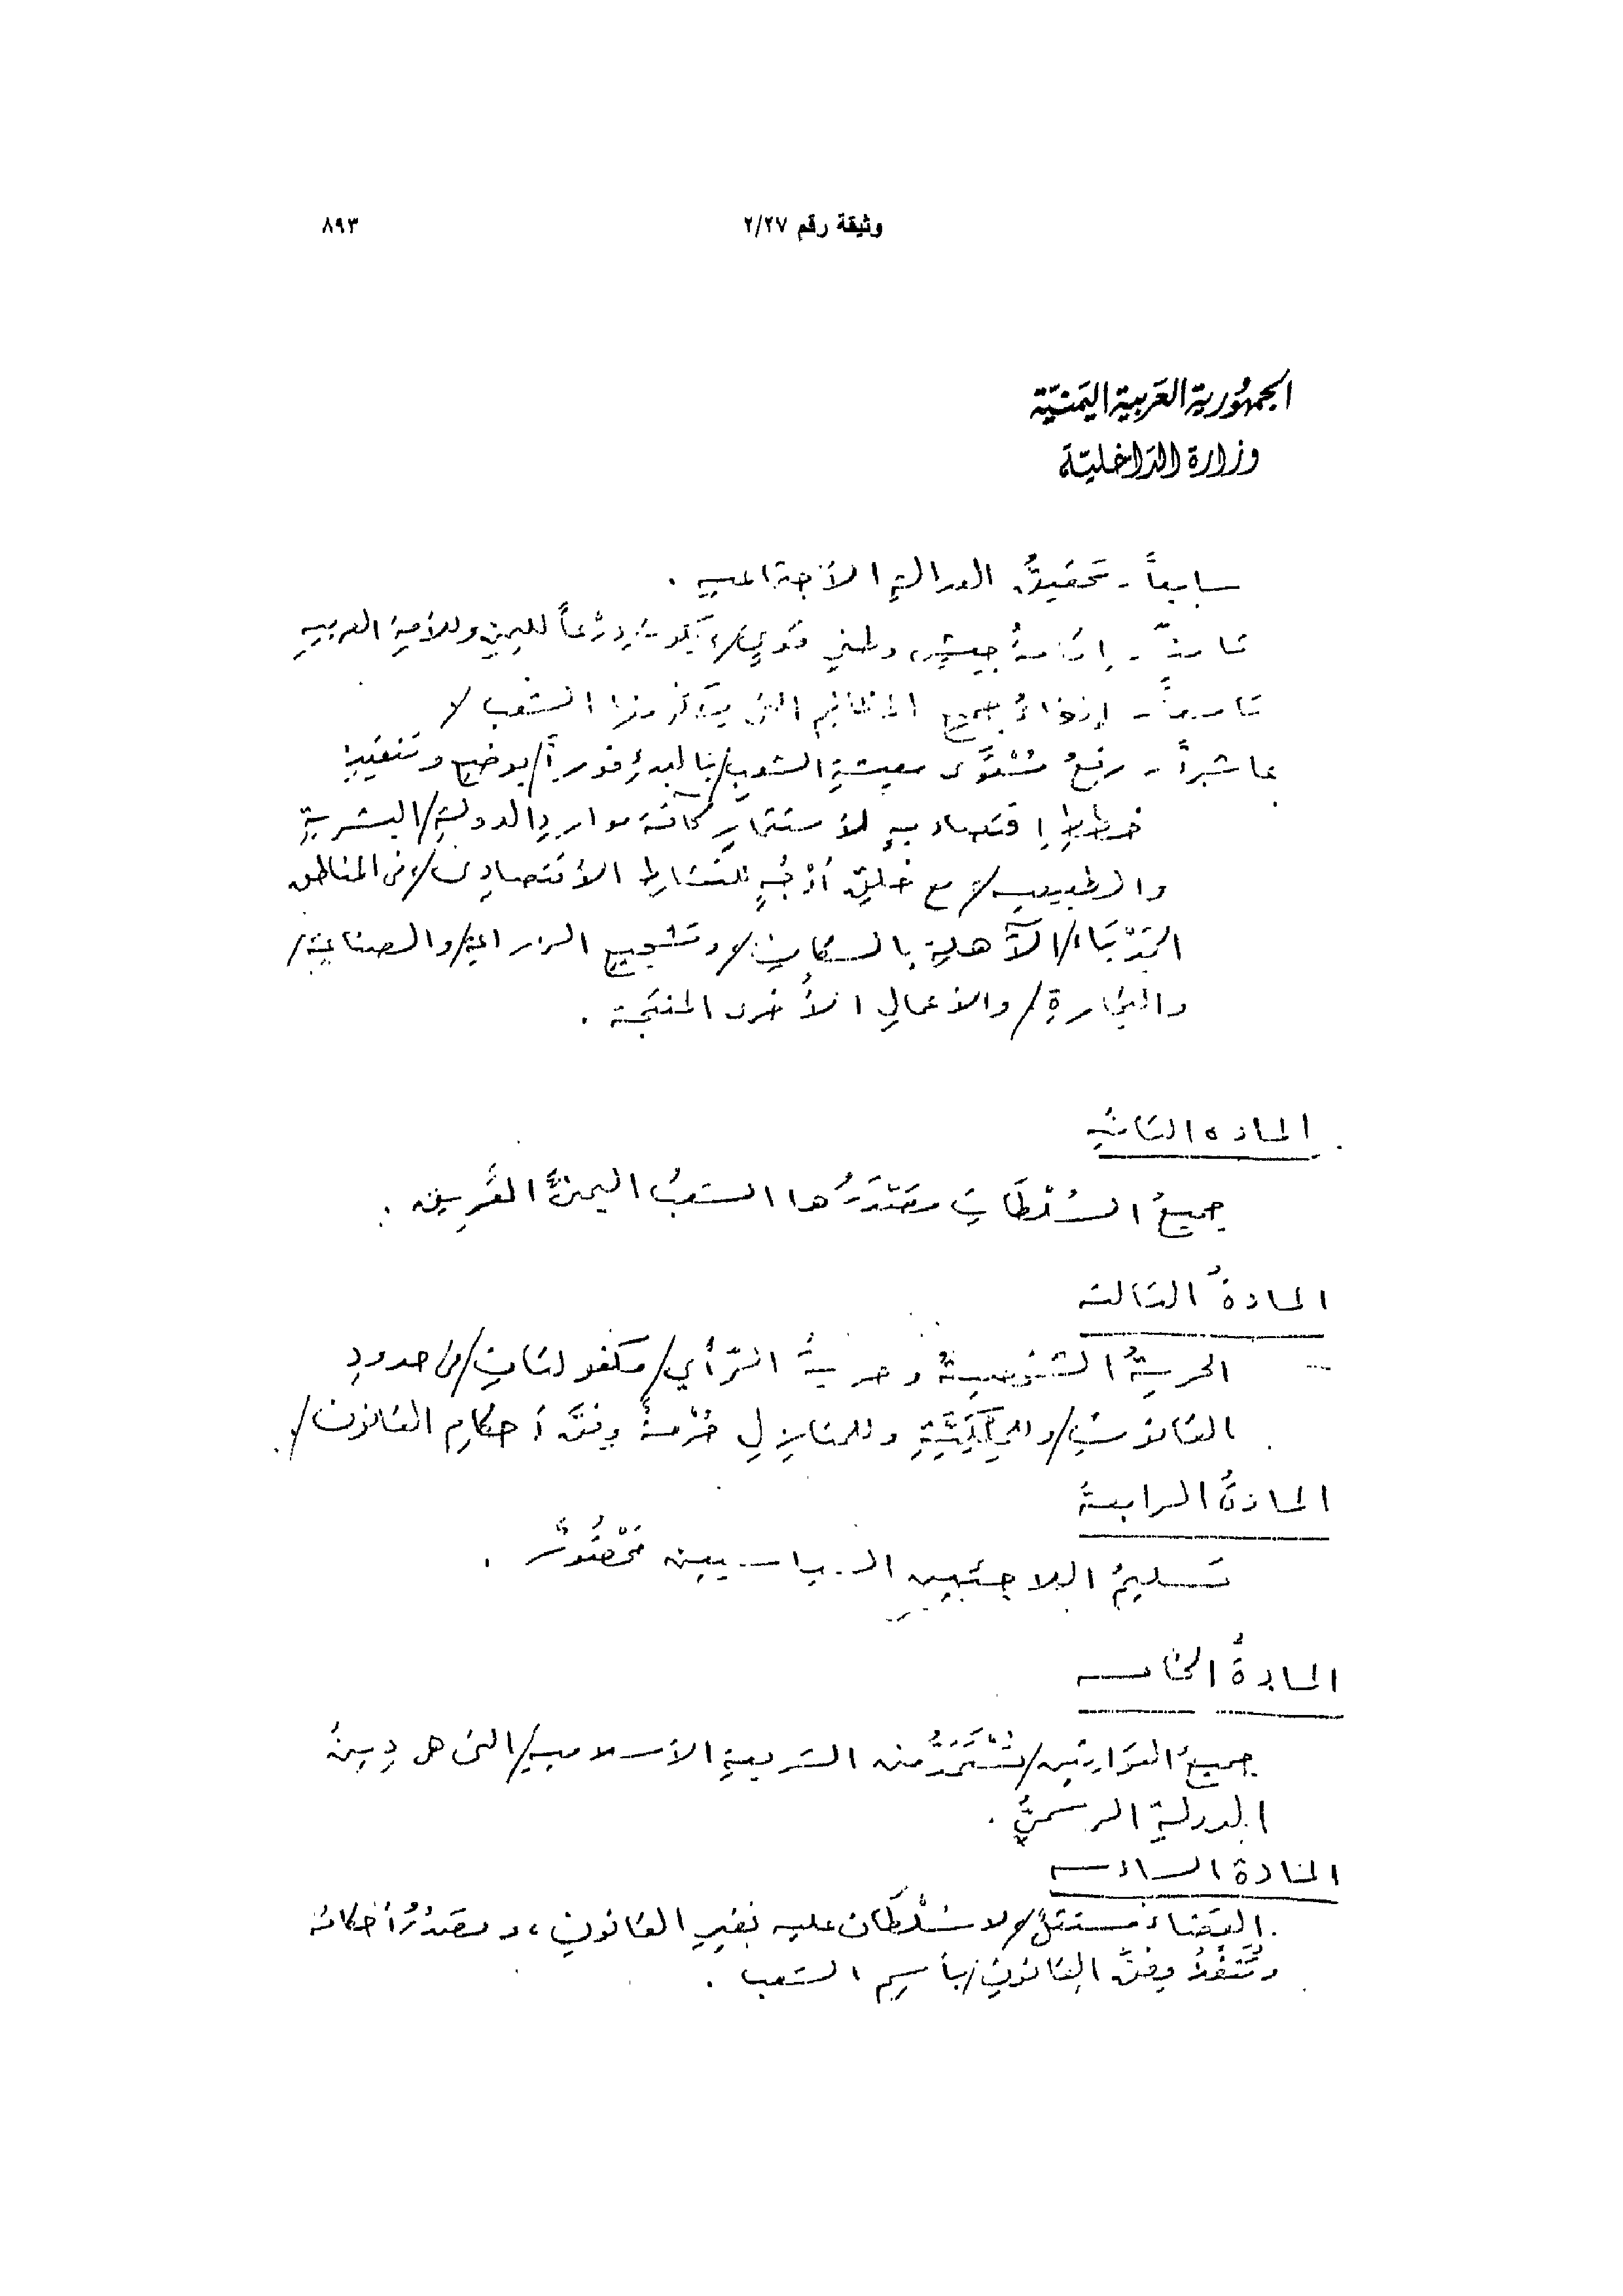 وثيقة رقم ٢/٢٧
٨٩٣
الجمهورية العربية اليمنية
وزارة الداخلية
سابعاً - تحقيقُ العدالةِ الأجتماعيه .
ثامناً - إقامةُ جيشٍ وطنيٍ قويٍ/، يكونُ دِرْعاً لليمنِ وللأمةِ العربيهِ
تاسعاً - إنهاءُ جميعِ المظالمِ التي يتذمر منها الشعب /
عاشراً - رفعُ مُسْتَوَى معيشةِ الشعبِ/بالبدءِ فوراً/بوضعِ وتنفيذِ
خططٍ إقتصاديهٍ للأستثمارِ كافة مواردِ الدولةِ/البشريةِ
والطبيعيهِ/ مع خلقِ أوْجُهٍ للنشاطِ الأقتصادى/فى المناطق
الجَدْبَاءِ/الآهلةِ بالسكانِ/ وتشجيعِ الزراعةِ/والصناعةِ/
والتجارةِ/ والأعمالِ الأُخرى المنتجة .
الماده الثانيه
جميعُ السُلْطَاتِ مَصْدَرُها الشعبُ اليمنىُّ العَرِيق .
المادةُ الثالثه
الحريةُ الشخصيةُ وحريةُ الرّأيِ/مكفولتانِ/فى حدودِ
القانونِ/وللمِلْكِيَّةِ وللمنازلِ حُرْمةٌ وِفْقَ أحكامِ القانون/.
المادةُ الرابعةُ
تسليمُ اللاجئين السياسيين مَحْظُورٌ .
المادةُ الخامسه
جميعُ القوانين/تُسْتَمَدُّ من الشريعةِ الأسلاميهِ/التى هى دِينُ
الدولةِ الرسمىُّ .
المادة السادسه
القضاءُ مستقلٌ/لا سُلْطَانَ عليه بغيرِ القانونِ، وتصدُرُ أحكامه
وتُنَفَّذُ وِفْقَ القانونِ/بأسمِ الشعب .